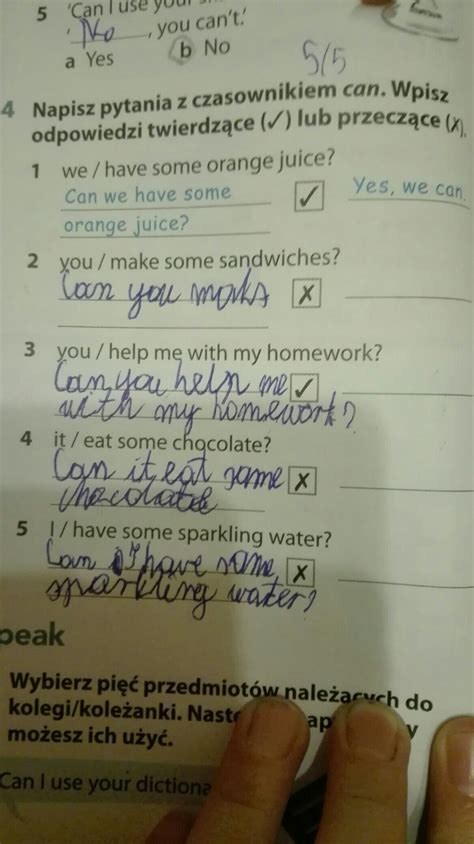 5 'Can I use your
'No, you can't.'
a Yes b No
5/5
4 Napisz pytania z czasownikiem can. Wpisz
odpowiedzi twierdzące (✓) lub przeczące (✗).
1 we / have some orange juice?
Can we have some ✓ Yes, we can.
orange juice?
2 you / make some sandwiches?
Can you ✗
3 you / help me with my homework?
Can you help me ✓
with my homework?
4 it / eat some chocolate?
Can it eat some ✗
5 I / have some sparkling water?
Can I have some ✗
sparkling water?
peak
Wybierz pięć przedmiotów należących do
kolegi/koleżanki.
możesz ich użyć.
Can I use your